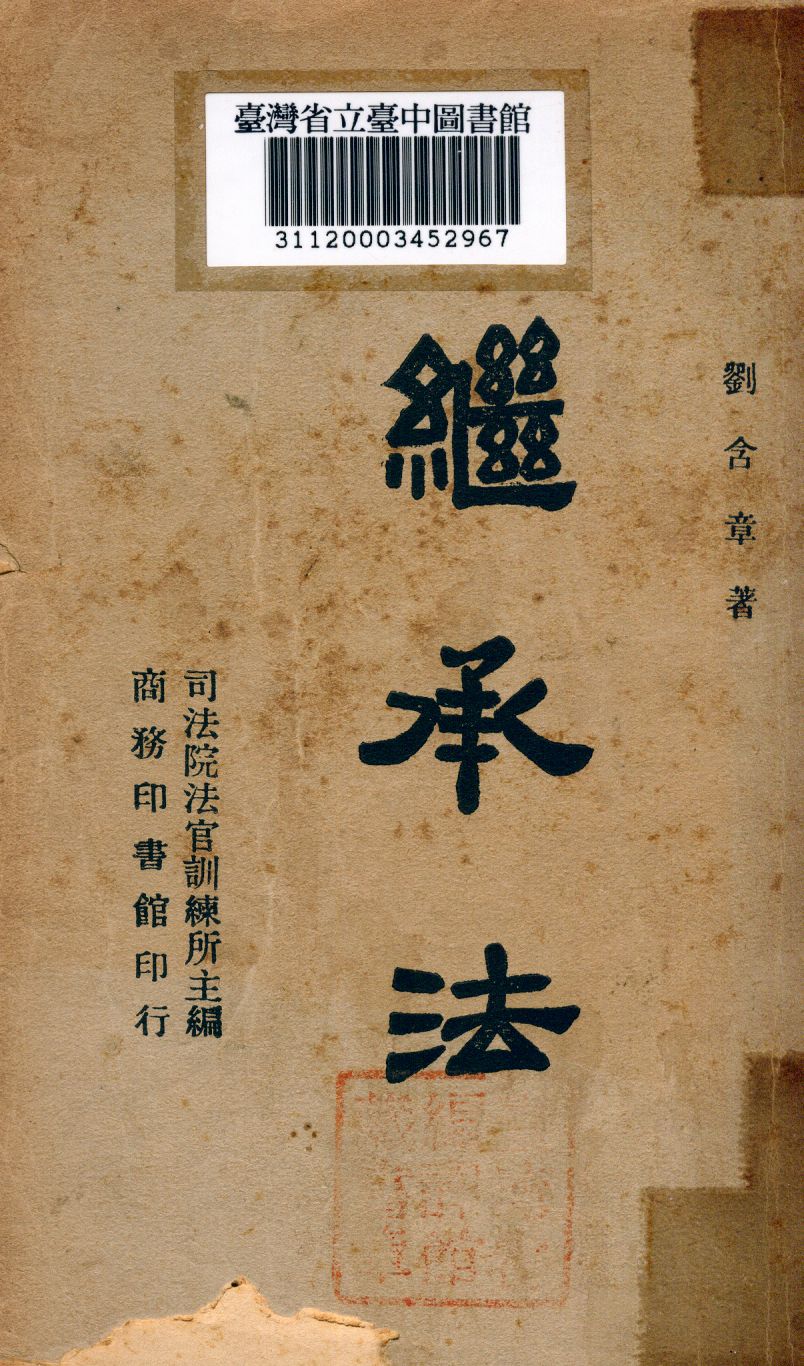 臺灣省立臺中圖書館
31120003452967
劉含章著
繼承法
司法院法官訓練所主編
商務印書館印行